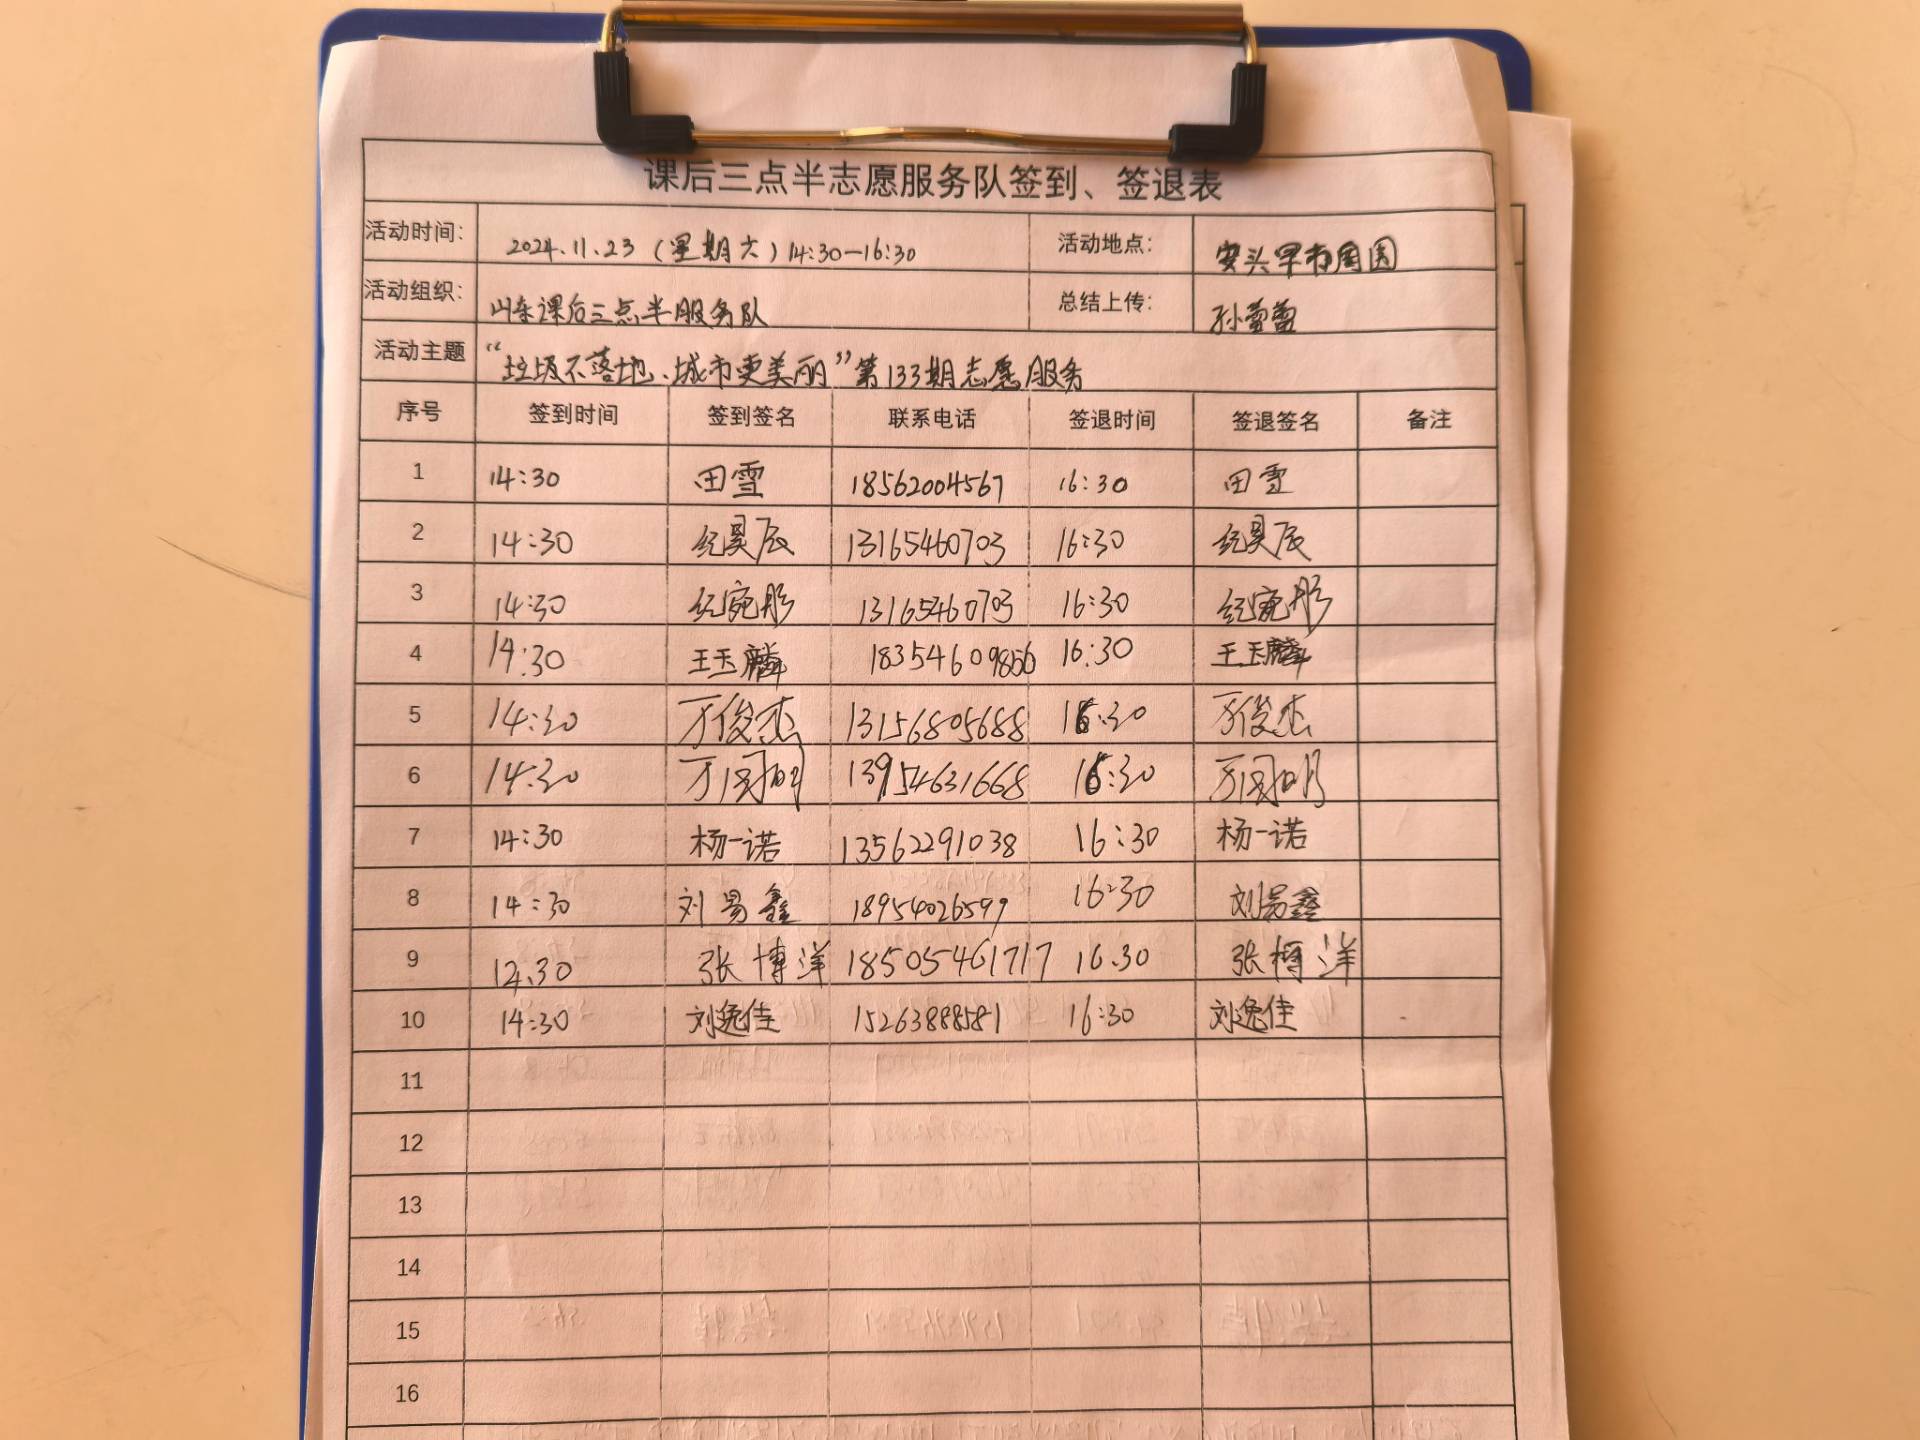 课后三点半志愿服务队签到、签退表
活动时间: 2024.11.23（星期六）14:30—16:30 活动地点: 安头早市周围
活动组织: 山东课后三点半服务队 总结上传: 孙蕾蕾
活动主题 “垃圾不落地、城市更美丽”第133期志愿服务
序号 签到时间 签到签名 联系电话 签退时间 签退签名 备注
1 14:30 田雪 18562004567 16:30 田雪
2 14:30 纪昊辰 13165460703 16:30 纪昊辰
3 14:30 纪宛彤 13165460703 16:30 纪宛彤
4 14:30 王玉麟 18354609856 16:30 王玉麟
5 14:30 万俊杰 13156805688 16:30 万俊杰
6 14:30 万国明 13954631668 16:30 万国明
7 14:30 杨一诺 13562291038 16:30 杨一诺
8 14:30 刘易鑫 18954026599 16:30 刘易鑫
9 12.30 张博洋 18505461717 16.30 张博洋
10 14:30 刘逸佳 15263888581 16:30 刘逸佳
11
12
13
14
15
16